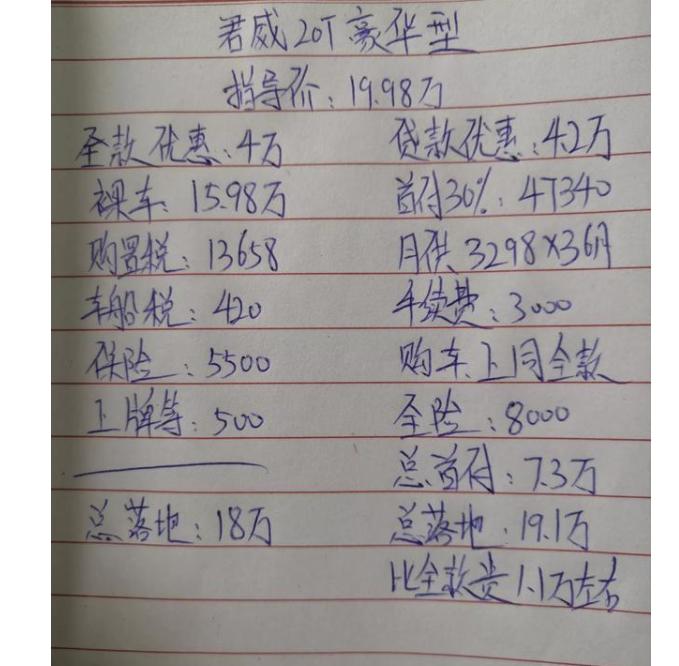 君威20T豪华型
指导价：19.98万
全款优惠：4万
裸车：15.98万
购置税：13658
车船税：420
保险：5500
上牌等：500
总落地：18万
贷款优惠：4.2万
首付30%：47340
月供3298×36月
手续费：3000
购车上同全款
全险：8000
总首付：7.3万
总落地：19.1万
比全款贵1.1万左右